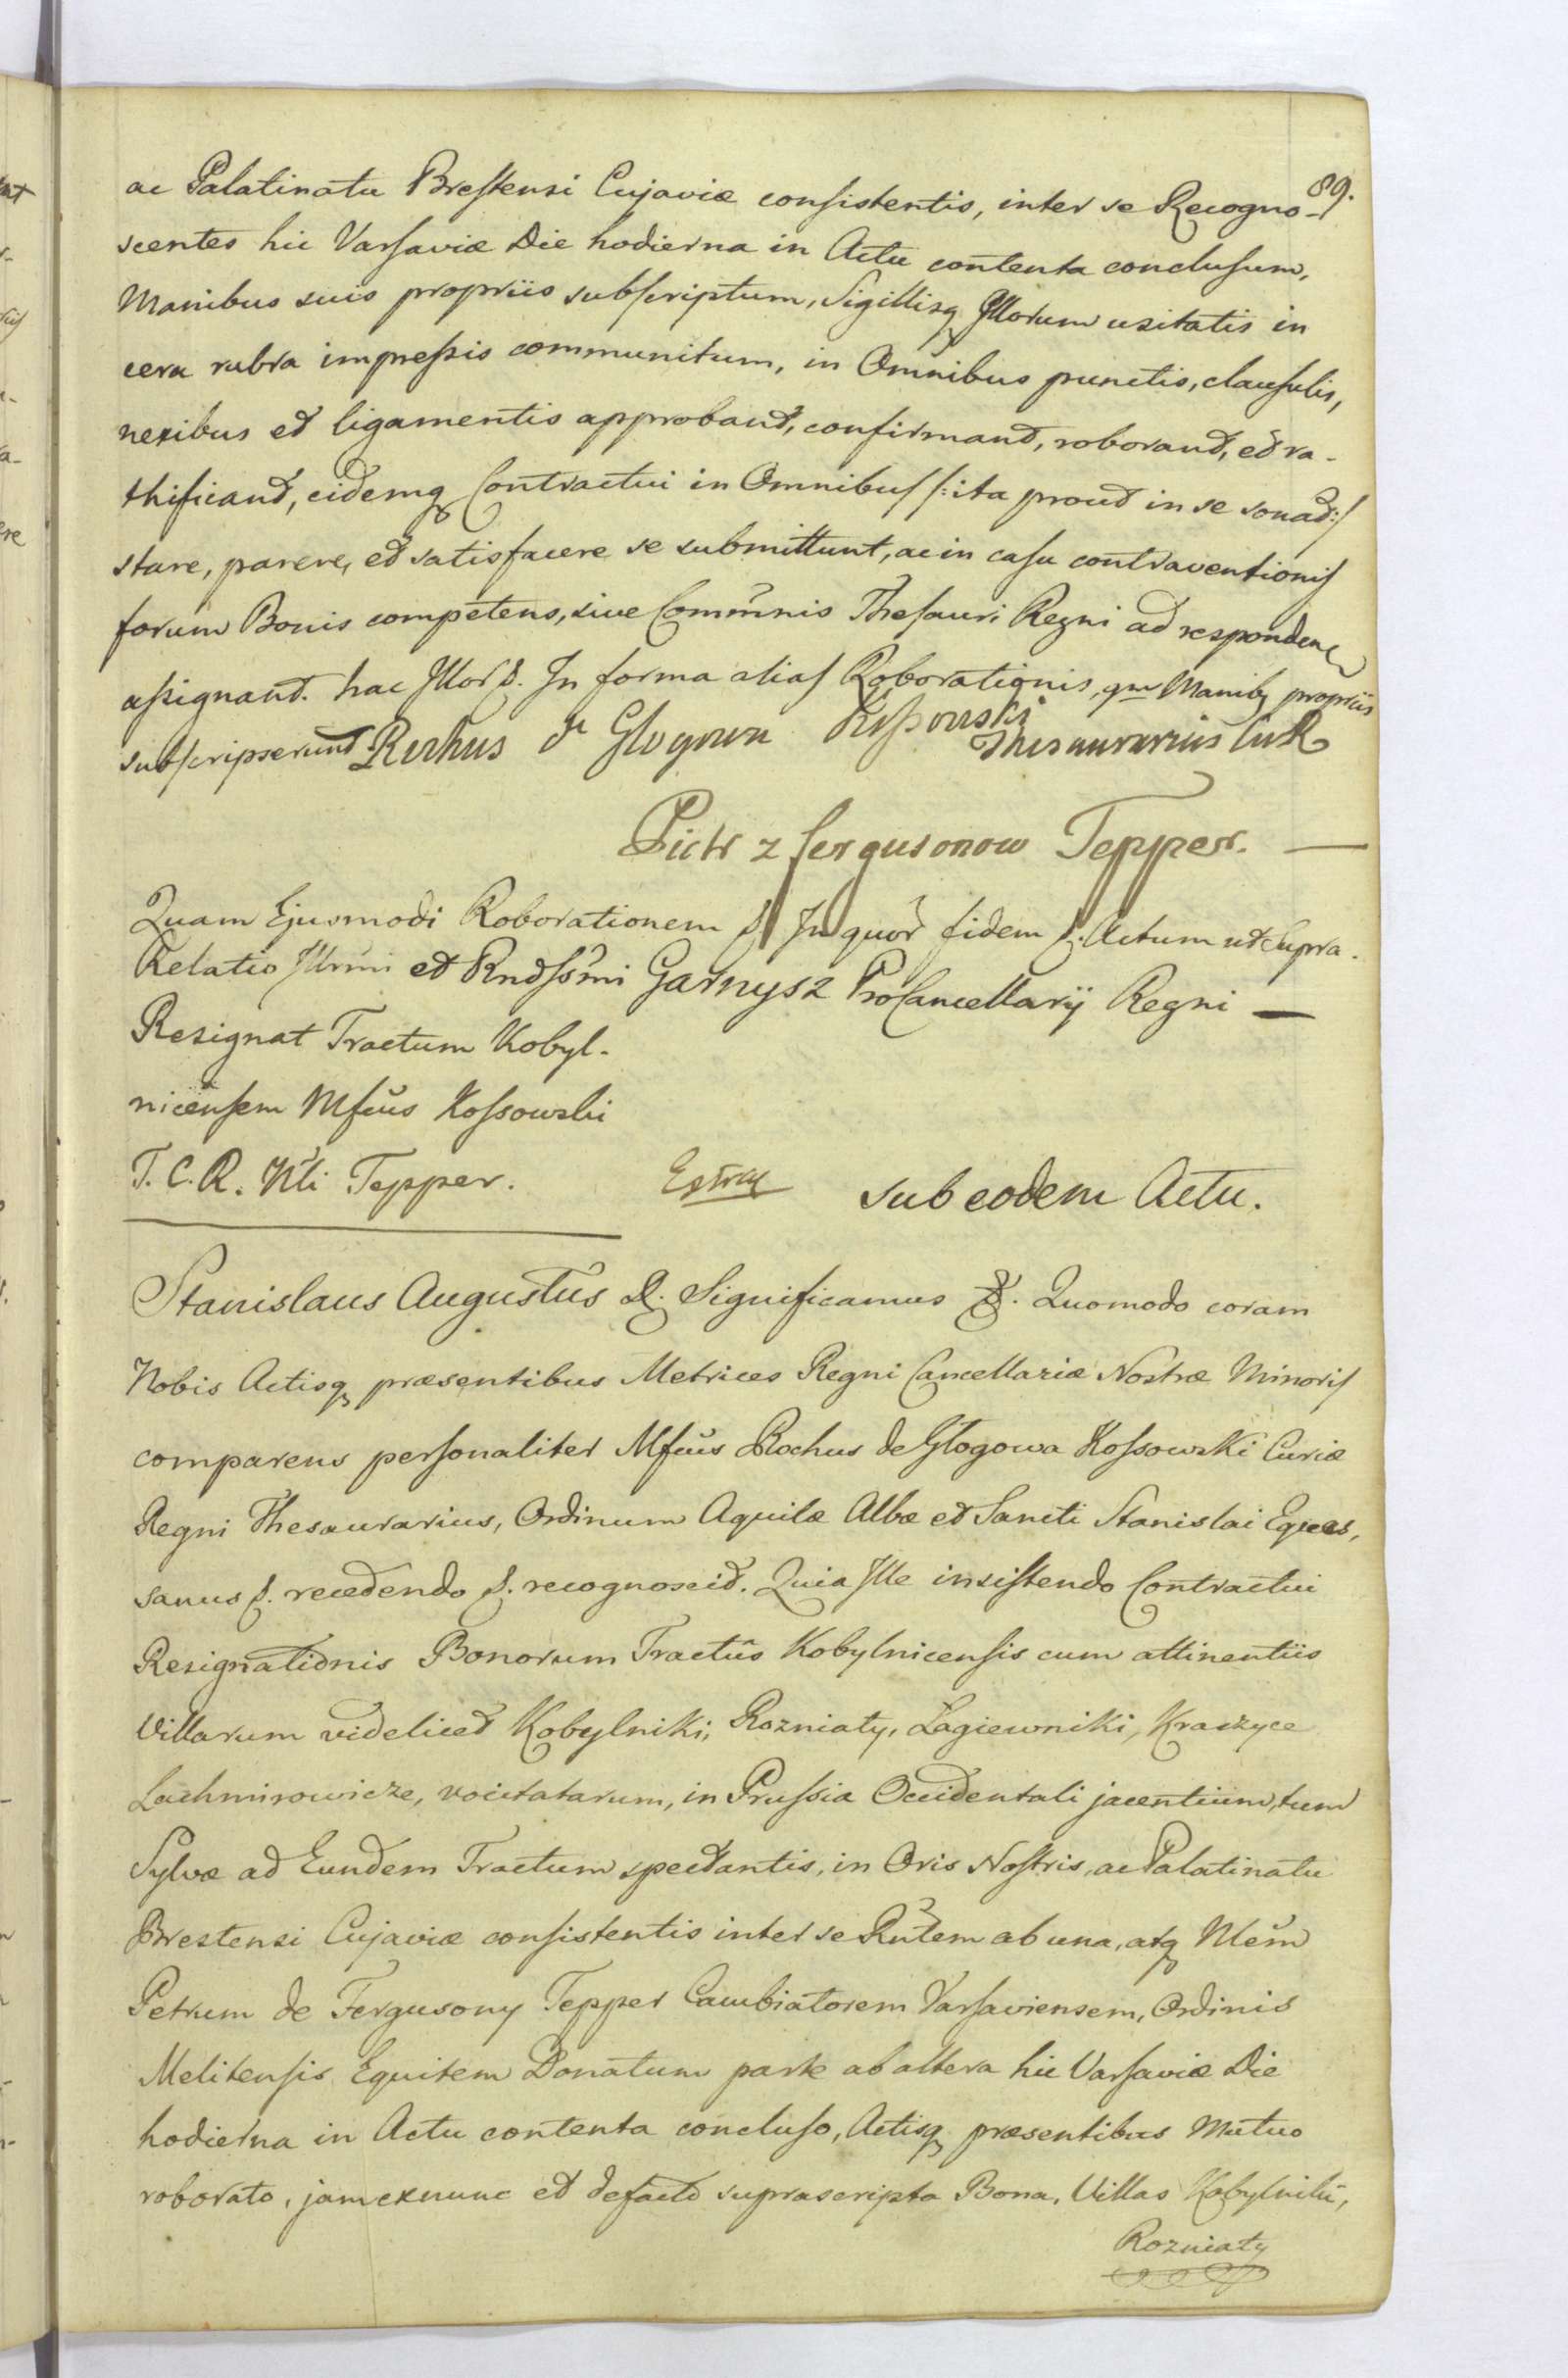 89.
ac Palatinatu Brestensi Cujaviæ consistentis, inter se Recogno-
scentes hic Varsaviæ Die hodierna in Actu contenta conclusum,
Manibus suis propriis subscriptum, Sigillisq Illorum usitatis in
cera rubra impressis communitum, in Omnibus punctis, clausulis,
nexibus et ligamentis approbant, confirmant, roborant, et ra-
thificant, eidemq Contractui in Omnibus /:ita prout in se sonat:/
stare, parere, et satisfacere se submittunt, ac in casu contraventionis
forum Bonis competens, sive Commnis Thesauri Regni ad responden
assignant. hac Illor &. In forma alias Roborationis, qm Manibq propriis
subscripserunt. Rochus de Glogowa Kossowski
Thesaurarius CurR
Piotr z fergusonow Tepper. —
Quam Ejusmodi Roborationem & In quor fidem &. Actum ut Supra.
Relatio Illrmi et Rndssmi Garnysz ProCancellarij Regni —
Resignat Tractum Kobyl-
nicensem Mfcus Kossowski
T. C. R. Nli Tepper.
Extra
sub eodem Actu.
Stanislaus Augustus &. Significamus &. Quomodo coram
Nobis Actisq præsentibus Metrices Regni Cancellariæ Nostræ Minoris
comparens personaliter Mfcus Rochus de Głogowa Kossowski Curiæ
Regni Thesaurarius, Ordinum Aquilæ Albæ et Sancti Stanislai Eques,
sanus &. recedendo &. recognoscit. Quia Ille insistendo Contractui
Resignationis Bonorum Tractûs Kobylnicensis cum attinentiis
Villarum videlicet Kobylniki, Rozniaty, Łagiewniki, Kraszyce
Lachmirowicze, vocitatarum, in Prussia Occidentali jacentium, tum
Sylvæ ad Eundem Tractum spectantis, in Oris Nostris, ac Palatinatu
Brestensi Cujaviæ consistentis inter se Rntem ab una, atq Nlem
Petrum de Fergusony Tepper Cambiatorem Varsaviensem, Ordinis
Melitensis Equitem Donatum parte ab altera hic Varsaviæ Die
hodierna in Actu contenta concluso, Actisq præsentibus Mutuo
roborato, jam exnunc et defacto suprascripta Bona, Villas Kobylniki,
Rozniaty